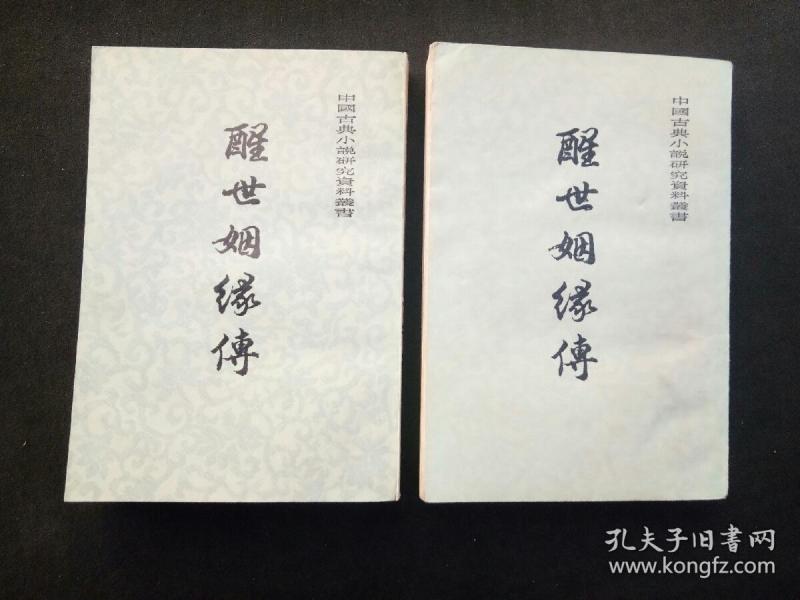 中國古典小說研究資料叢書
醒世姻緣傳
中國古典小說研究資料叢書
醒世姻緣傳
孔夫子旧书网
www.kongfz.com